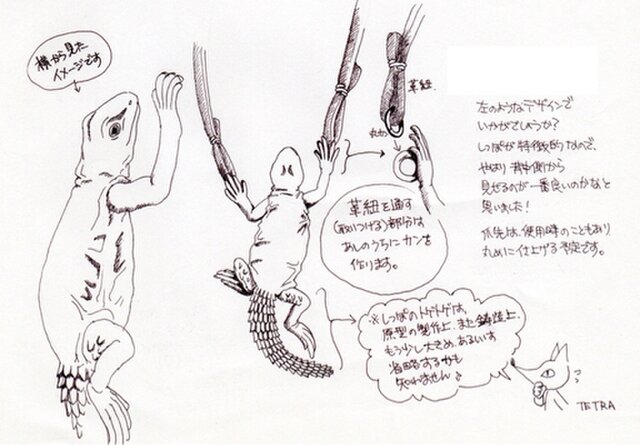 横から見た
イメージです
革紐
丸カン
左のようなデザインで
いかがでしょうか?
しっぽが特徴的なので、
やはり背中側から
見せるのが一番良いのかなと
思いました!
爪先は、使用時のこともあり
丸めに仕上げる予定です。
革紐を通す
(取りつける)部分は
あしのうちにカンを
作ります。
※しっぽのトゲトゲは、
原型の製作上、また鋳造上、
もう少し大きめ、あるいは
省略するかも
しれません♪
TETRA